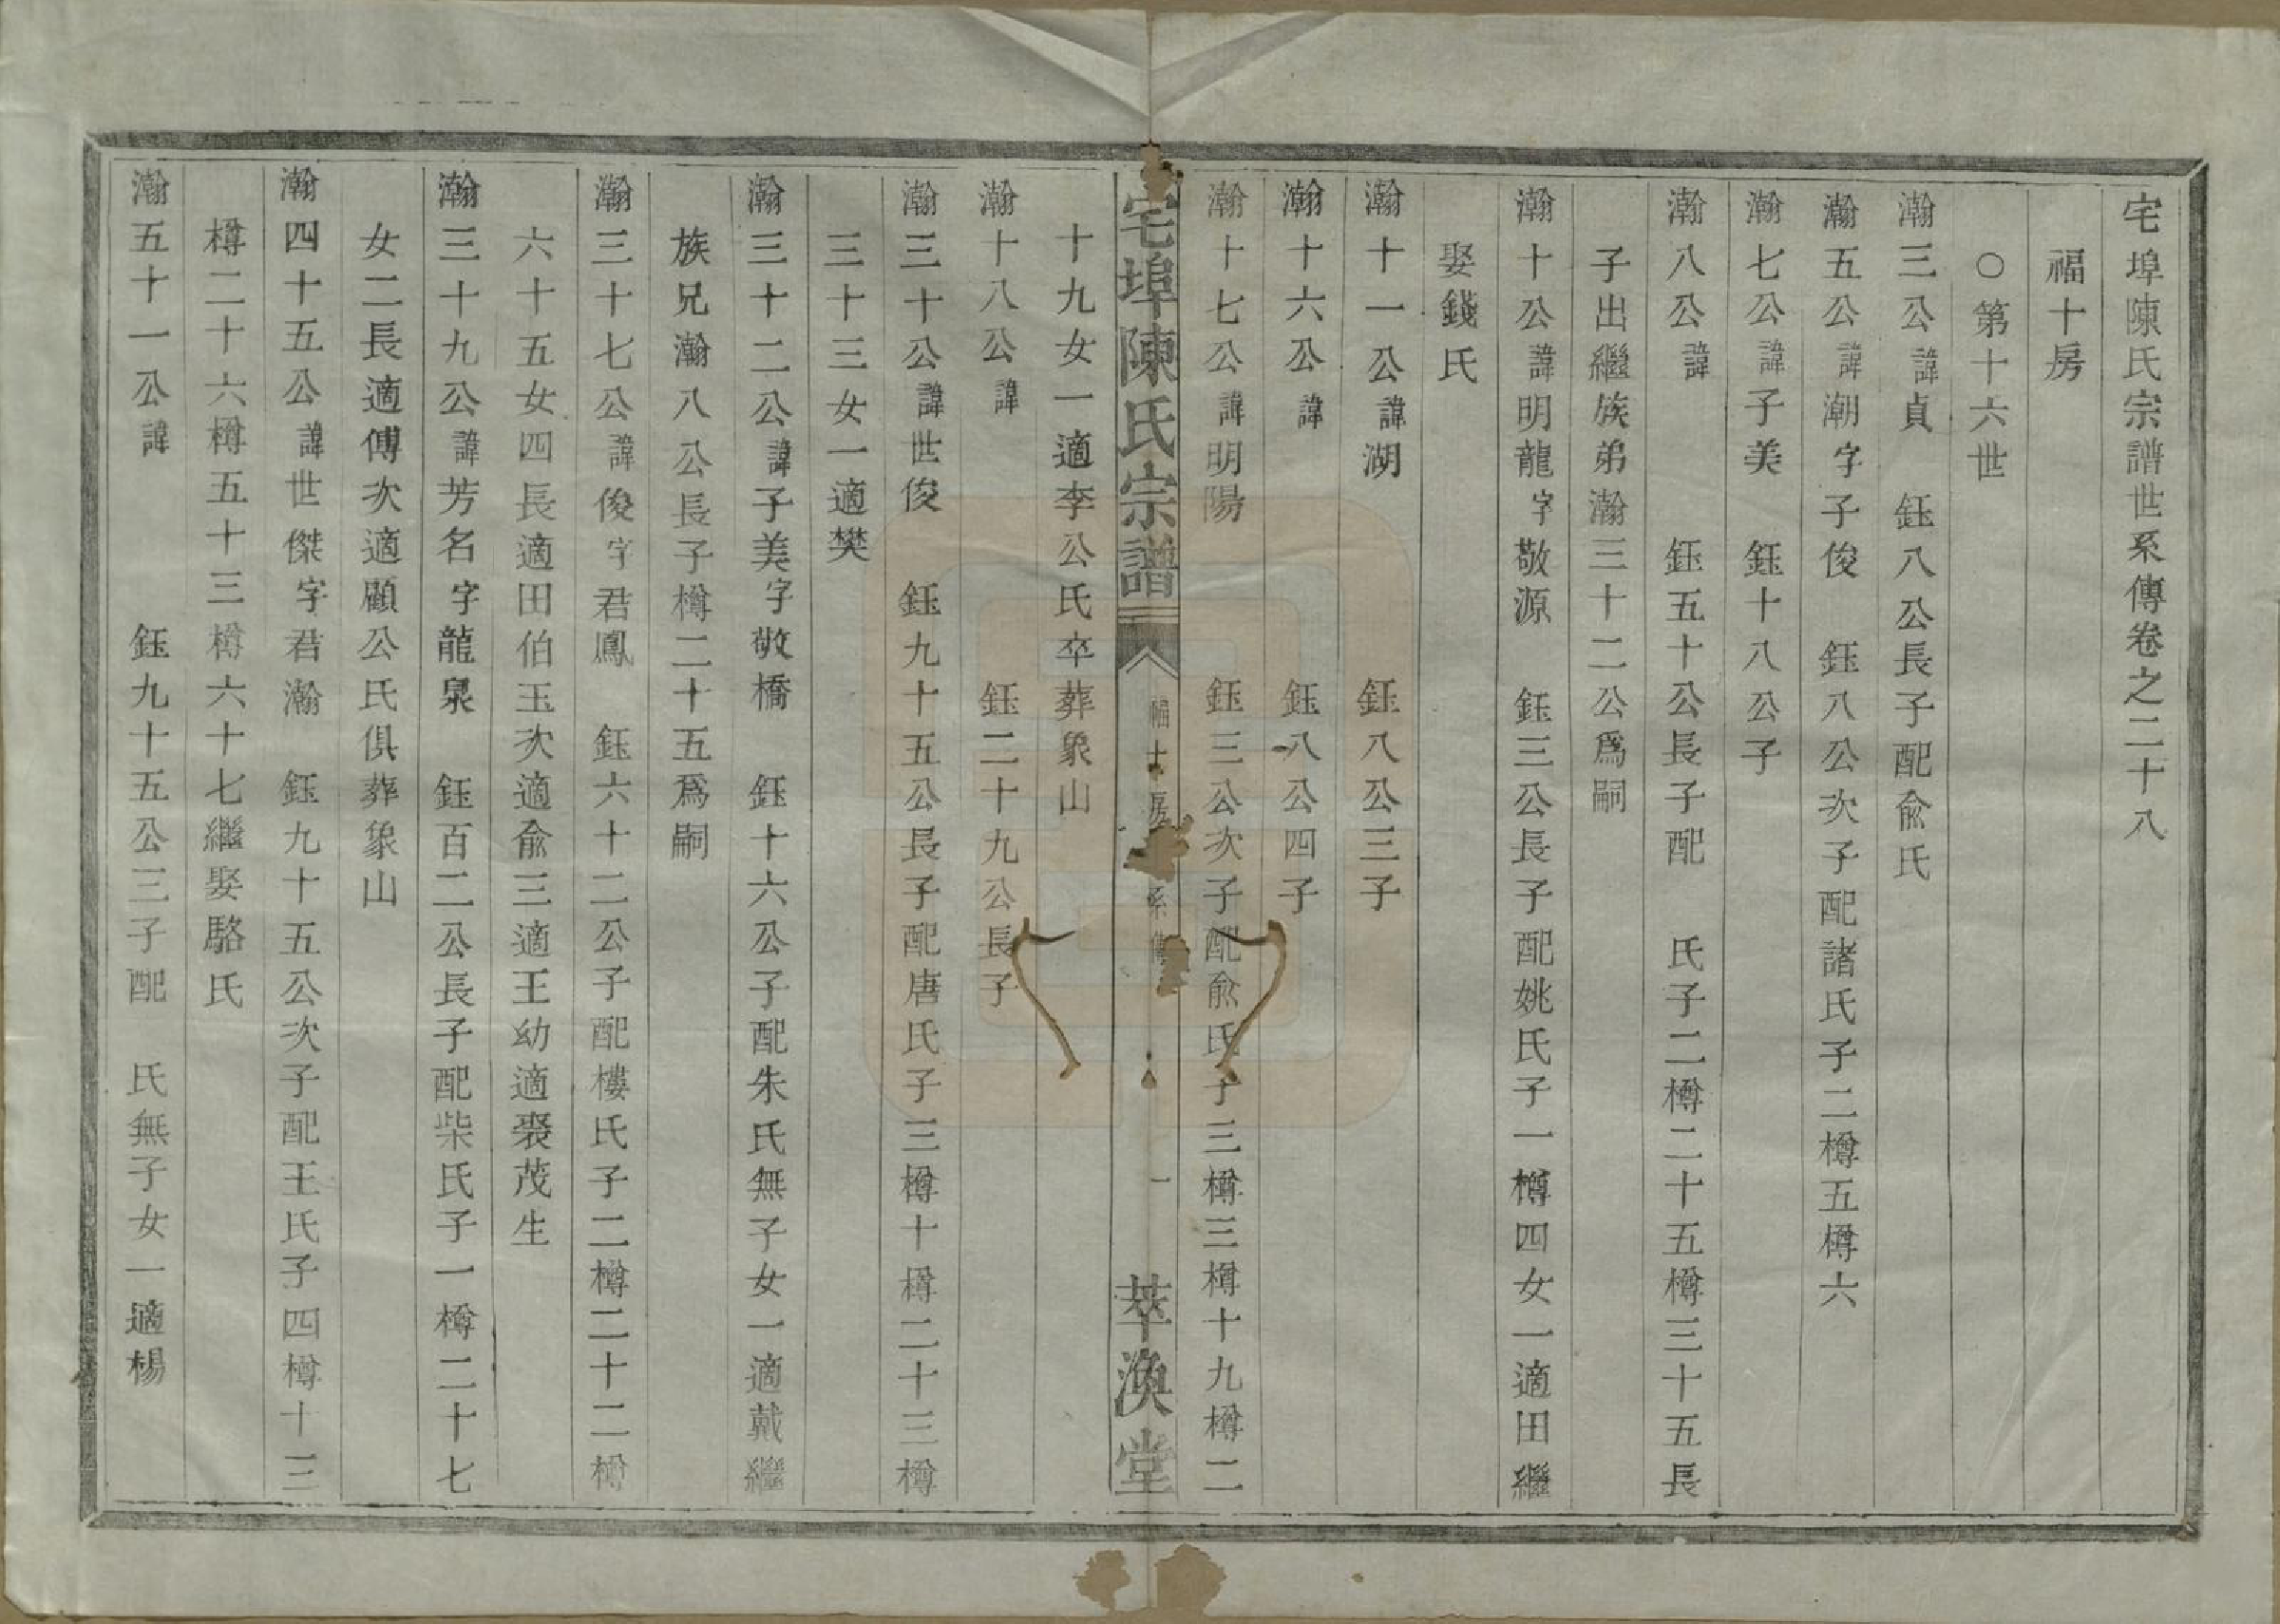 宅埠陳氏宗譜世系傳卷之二十八
福十房
○第十六世
瀚三公諱貞 鈺八公長子配俞氏
瀚五公諱潮字子俊 鈺八公次子配諸氏子二樽五樽六
瀚七公諱子美 鈺十八公子
瀚八公諱 鈺五十公長子配 氏子二樽二十五樽三十五長
子出繼族弟瀚三十二公爲嗣
瀚十公諱明龍字敬源 鈺三公長子配姚氏子一樽四女一適田繼
娶錢氏
瀚十一公諱湖 鈺八公三子
瀚十六公諱 鈺八公四子
瀚十七公諱明陽 鈺三公次子配俞氏子三樽三樽十九樽二
宅埠陳氏宗譜 福十房 系傳 一 萃渙堂
十九女一適李公氏卒葬象山
瀚十八公諱 鈺二十九公長子
瀚三十公諱世俊 鈺九十五公長子配唐氏子三樽十樽二十三樽
三十三女一適樊
瀚三十二公諱子美字敬橋 鈺十六公子配朱氏無子女一適戴繼
族兄瀚八公長子樽二十五爲嗣
瀚三十七公諱俊字君鳳 鈺六十二公子配樓氏子二樽二十二樽
六十五女四長適田伯玉次適俞三適王幼適裘茂生
瀚三十九公諱芳名字龍泉 鈺百二公長子配柴氏子一樽二十七
女二長適傅次適顧公氏俱葬象山
瀚四十五公諱世傑字君瀚 鈺九十五公次子配王氏子四樽十三
樽二十六樽五十三樽六十七繼娶駱氏
瀚五十一公諱 鈺九十五公三子配 氏無子女一適楊